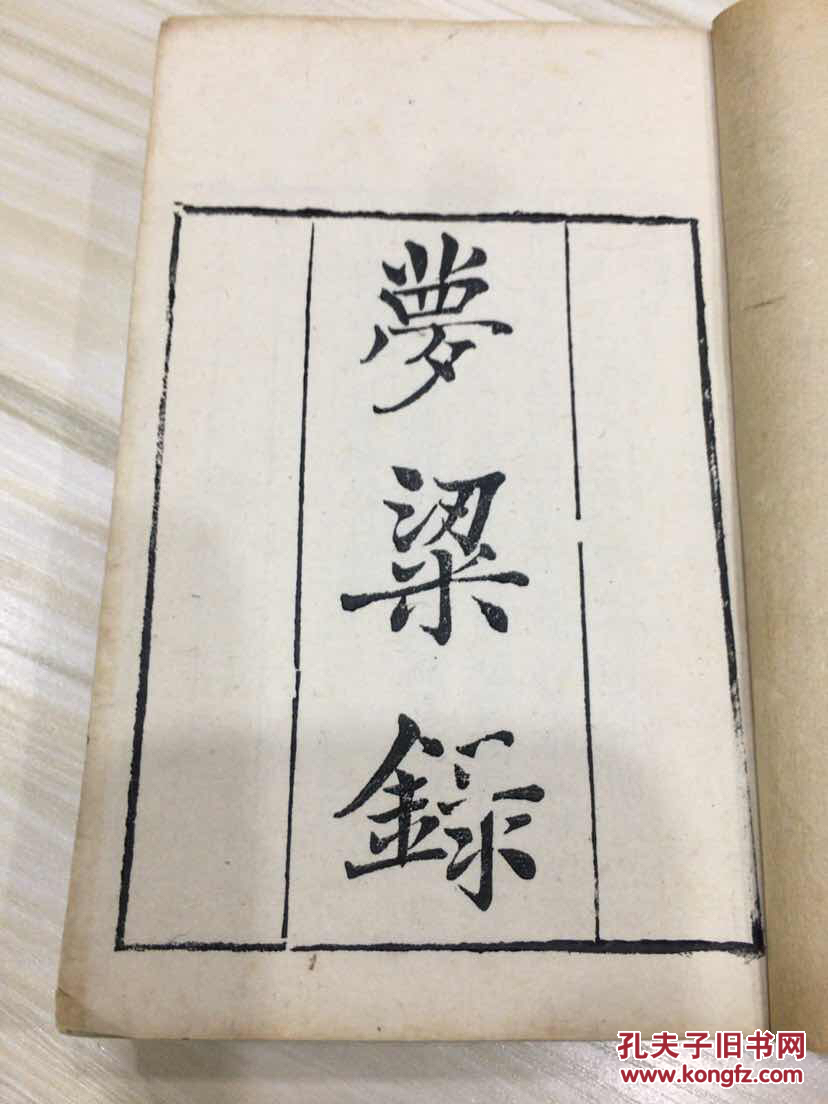 夢粱錄
孔夫子旧书网
www.kongfz.com